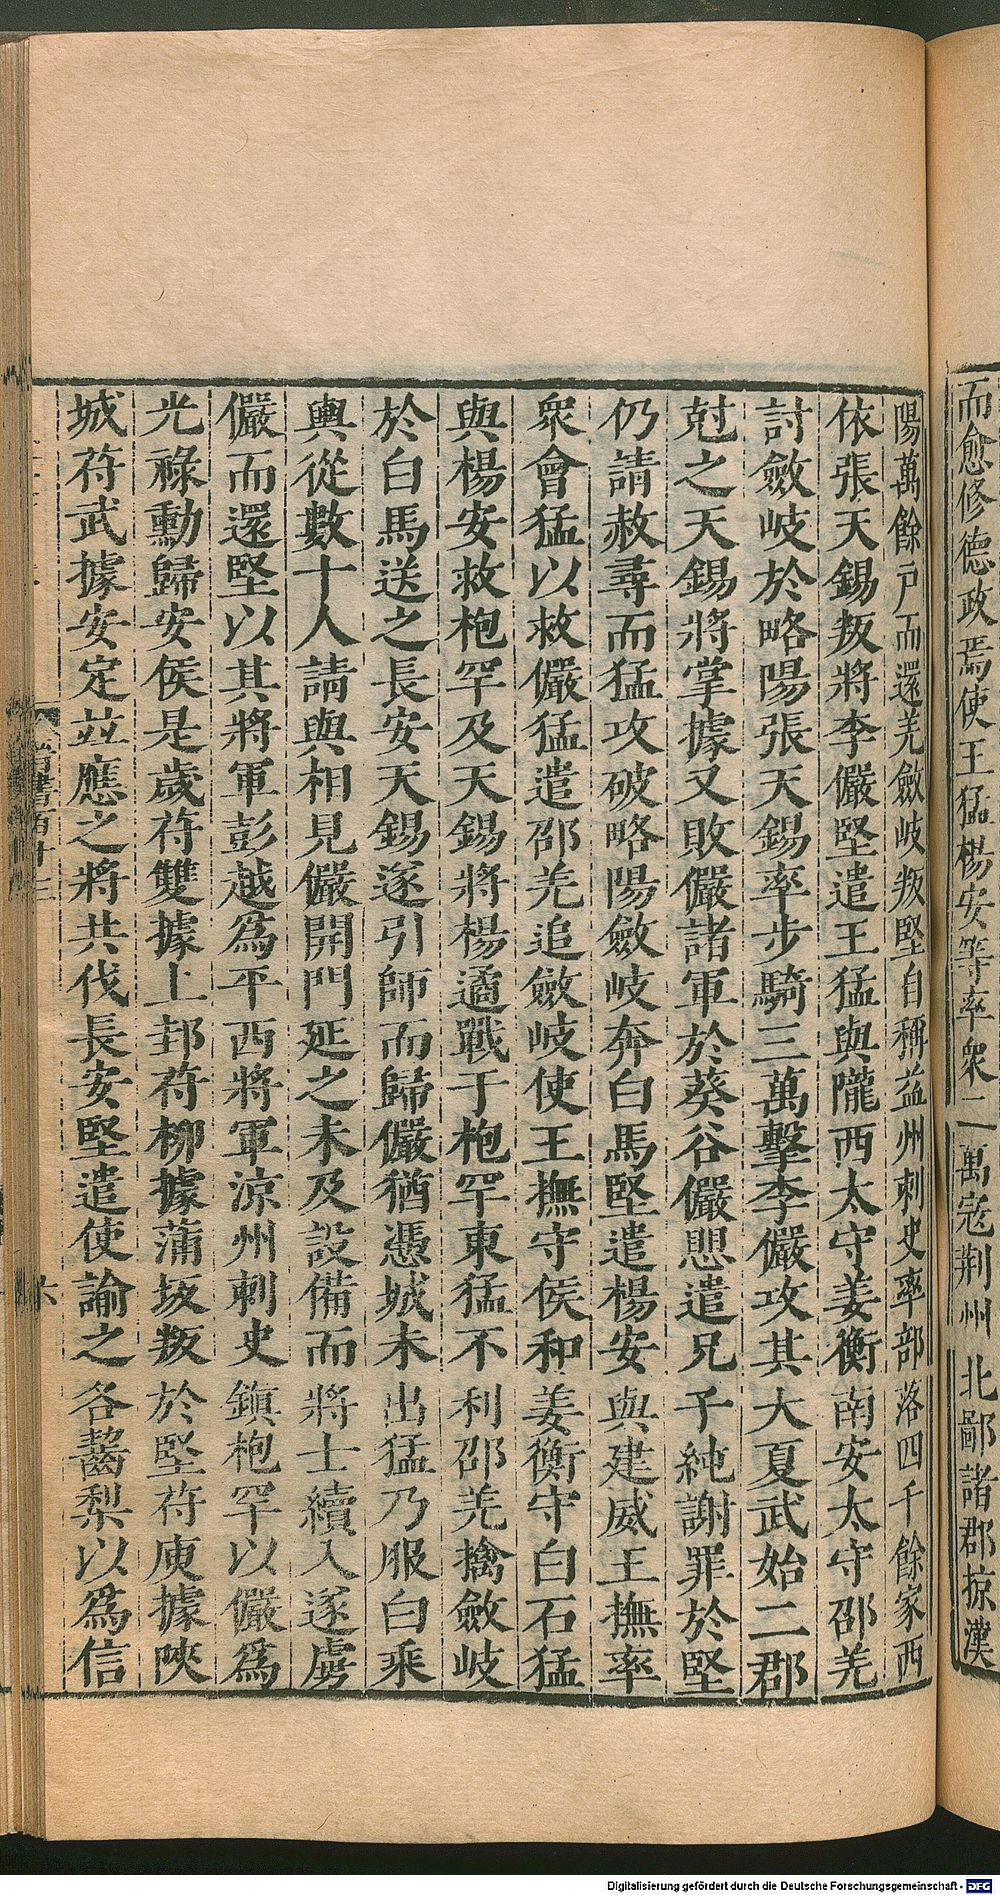 而愈修德政焉使王猛楊安等率衆二萬寇荆州北鄙諸郡掠漢
陽萬餘戸而還羌斂岐叛堅自稱益州刺史率部落四千餘家西
依張天錫叛將李儼堅遣王猛與隴西太守姜衡南安太守邵羌
討斂岐於略陽張天錫率步騎三萬擊李儼攻其大夏武始二郡
尅之天錫將掌據又敗儼諸軍於葵谷儼懼遣兄子純謝罪於堅
仍請救尋而猛攻破略陽斂岐奔白馬堅遣楊安與建威王撫率
衆會猛以救儼猛遣邵羌追斂岐使王撫守侯和姜衡守白石猛
與楊安救枹罕及天錫將楊遹戰于枹罕東猛不利邵羌擒斂岐
於白馬送之長安天錫遂引師而歸儼猶憑城未出猛乃服白乘
輿從數十人請與相見儼開門延之未及設備而將士續入遂虜
儼而還堅以其將軍彭越爲平西將軍涼州刺史鎮枹罕以儼爲
光祿勳歸安侯是歲苻雙據上邽苻柳據蒲坂叛於堅苻庾據陝
城苻武據安定並應之將共伐長安堅遣使諭之各齧梨以爲信
晉書百十三
六
Digitalisierung gefördert durch die Deutsche Forschungsgemeinschaft - DFG